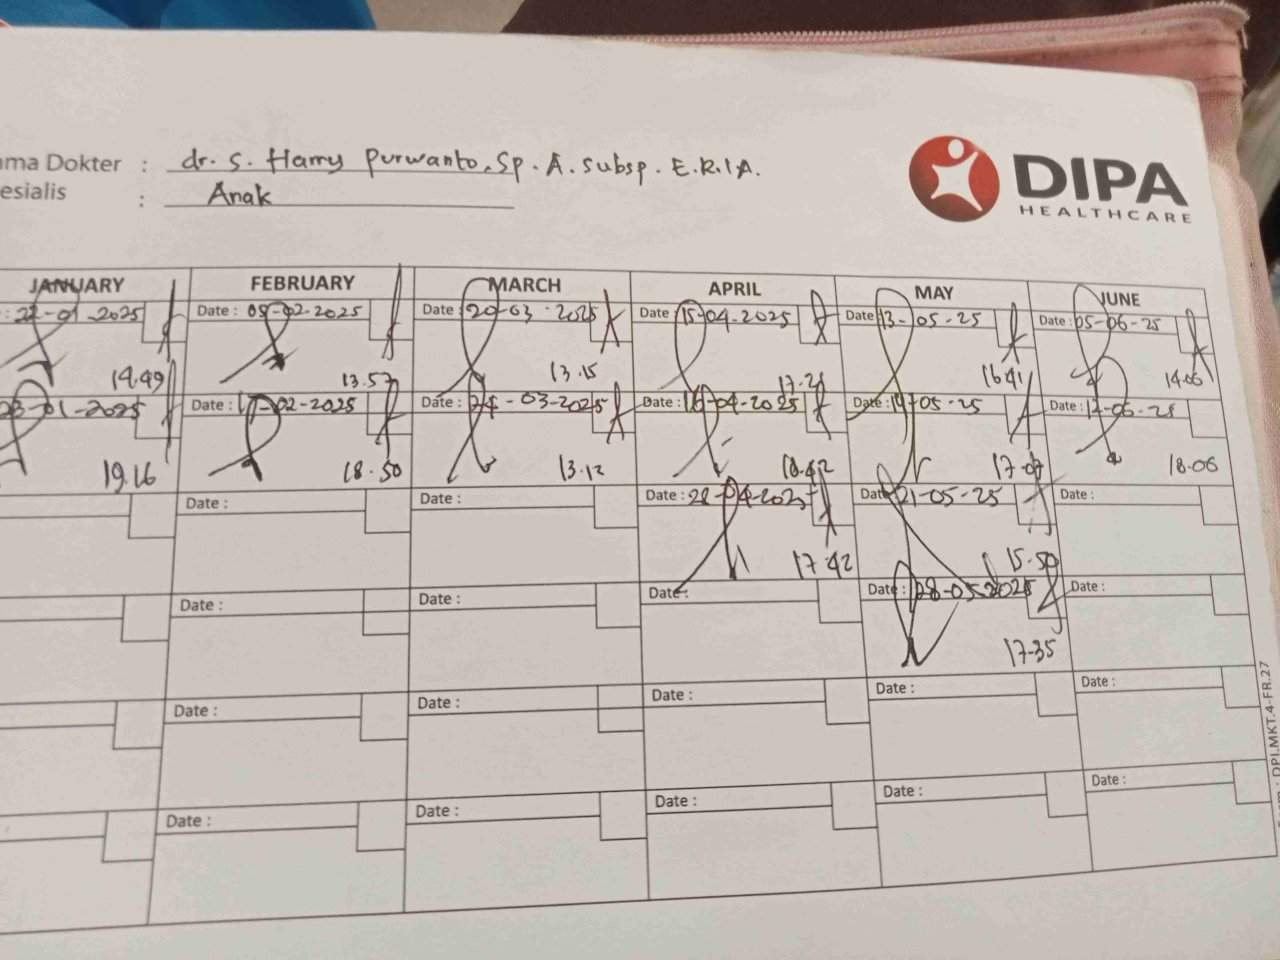 ama Dokter : dr. S. Harry Purwanto, Sp. A. subsp. E.R.I.A.
esialis : Anak
DIPA
HEALTHCARE
JANUARY FEBRUARY MARCH APRIL MAY JUNE
: 22-01-2025 Date : 05-02-2025 Date : 20-03-2025 Date : 15-04-2025 Date : 13-05-25 Date : 05-06-25
14.49 13.57 13.15 17.21 16.41 14.06
-01-2025 Date : -02-2025 Date : 24-03-2025 Date : 16-04-2025 Date : -05-25 Date : 12-06-25
19.16 18.50 13.12 18.42 17.07 18.06
Date : Date : Date : 22-04-2025 Date : 21-05-25 Date :
17.42 15.50
Date : Date : Date : Date : 28-05-2025 Date :
17.35
Date : Date : Date : Date : Date :
Date : Date : Date : Date : Date :
: DPI.MKT.4-FR.27